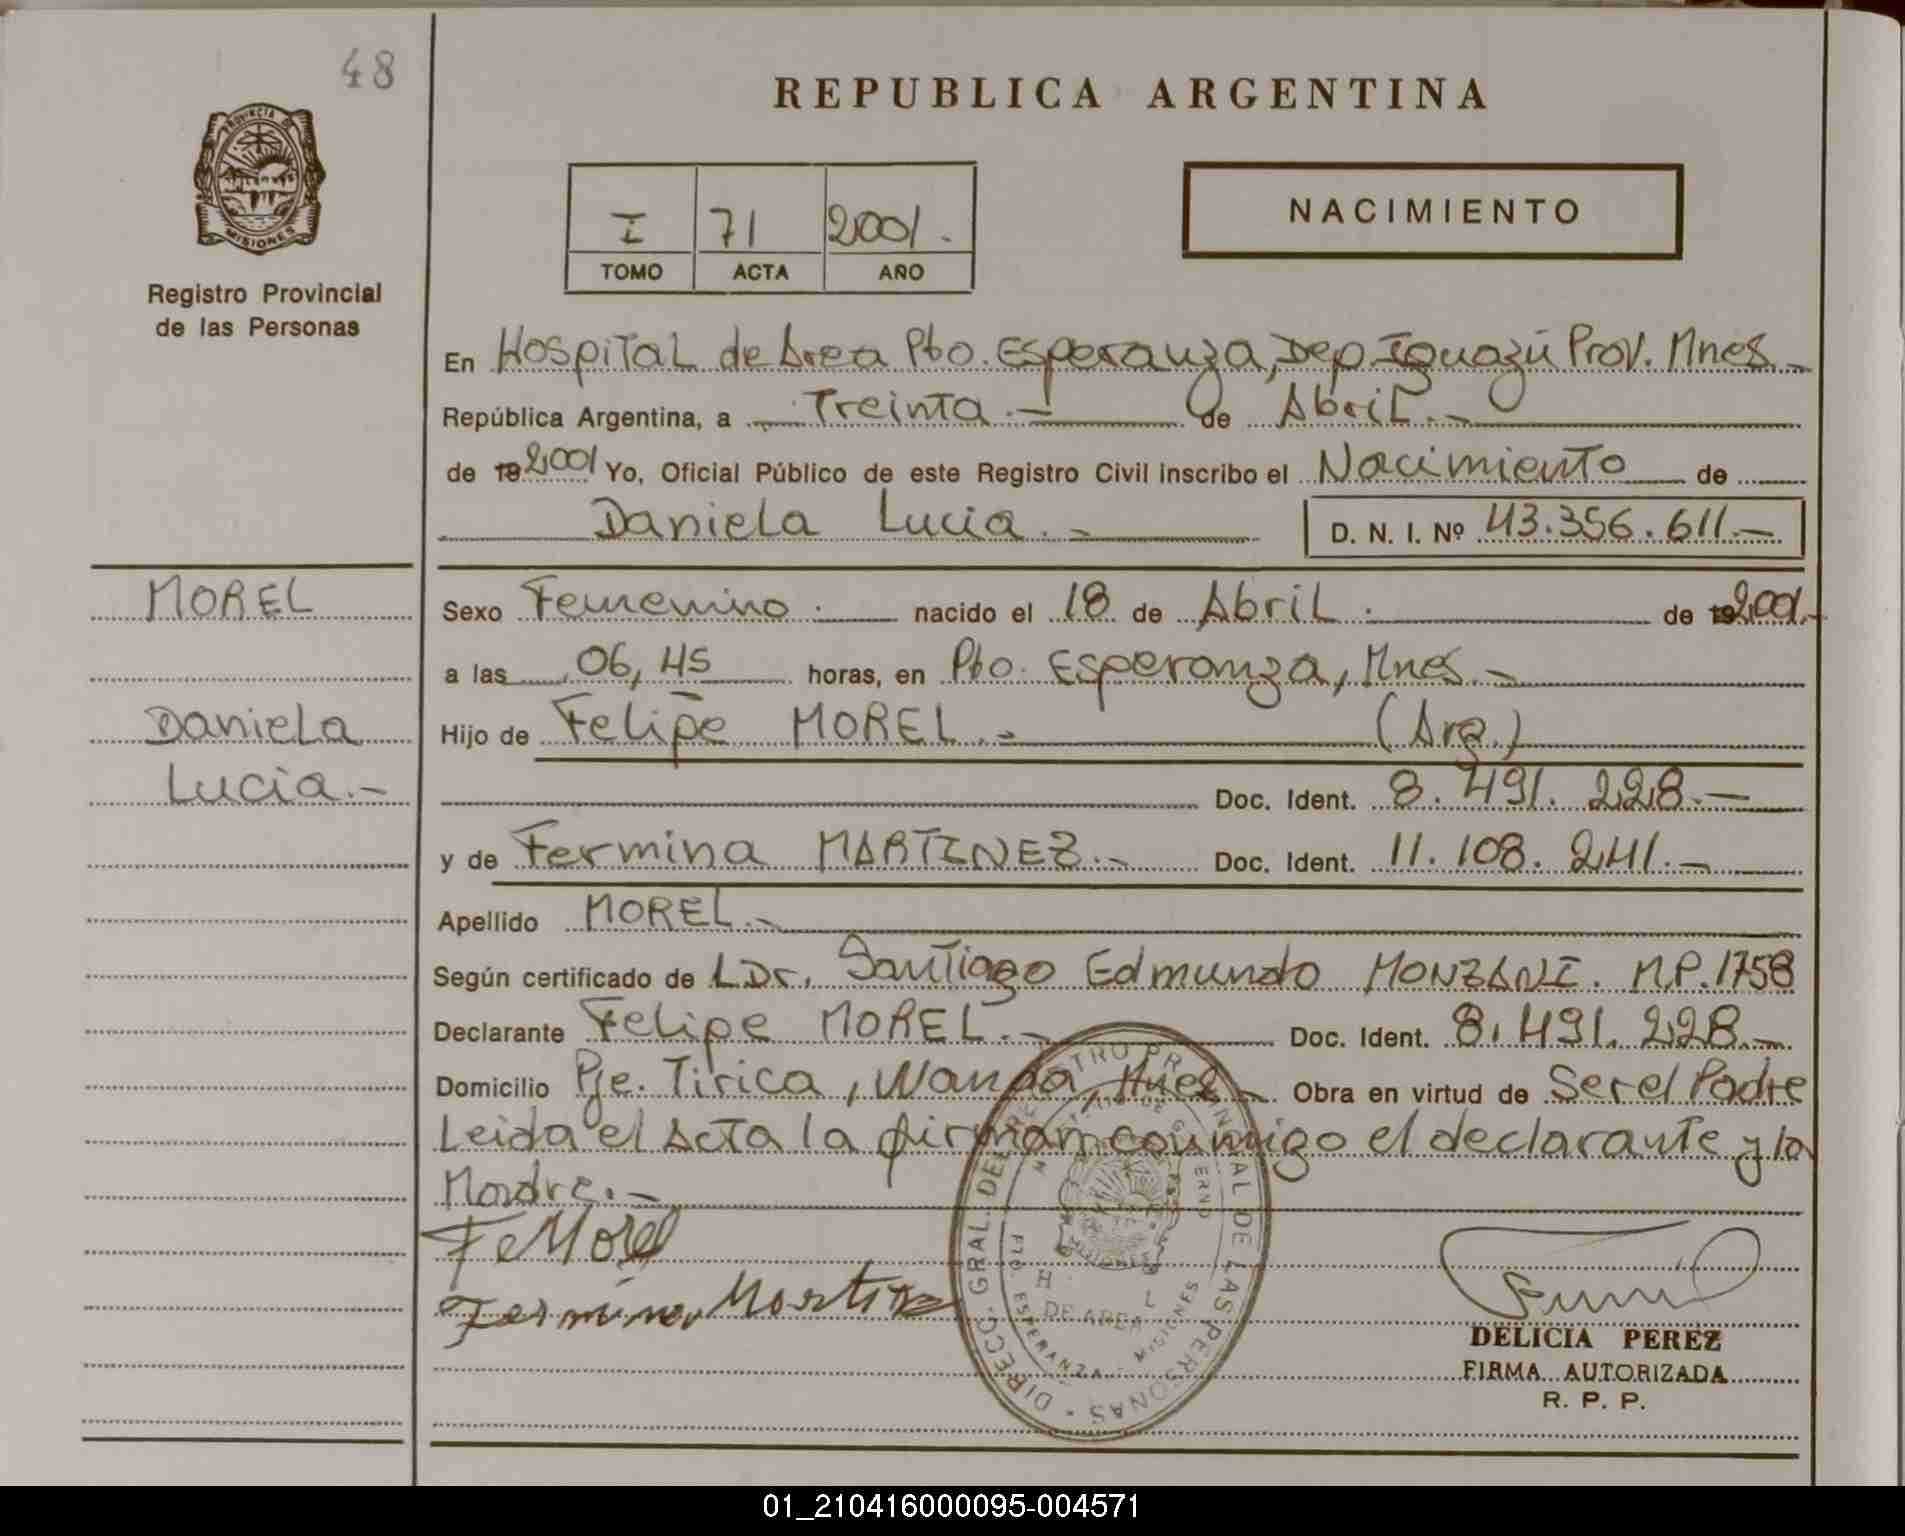 48
PROVINCIA DE
MISIONES
Registro Provincial
de las Personas
REPUBLICA ARGENTINA
I 71 2001.
TOMO ACTA AÑO
NACIMIENTO
En Hospital de Area Pto. Esperanza, Dep. Iguazú Prov. Mnes.-
República Argentina, a Treinta.- de Abril.-
de 19 2001 Yo, Oficial Público de este Registro Civil inscribo el Nacimiento de
Daniela Lucia.- D. N. I. Nº 43.356.611.-
MOREL
Daniela
Lucia.-
Sexo Femenino. nacido el 18 de Abril. de 19 2001.-
a las 06,45 horas, en Pto. Esperanza, Mnes.-
Hijo de Felipe MOREL.- (Arg.)
Doc. Ident. 8.491.228.-
y de Fermina MARTINEZ.- Doc. Ident. 11.108.241.-
Apellido MOREL.-
Según certificado de L.Dr. Santiago Edmundo MONZANI. M.P.1758
Declarante Felipe MOREL.- Doc. Ident. 8.491.228.-
Domicilio Pje. Tirica, Wanda, Mnes.- Obra en virtud de Ser el Padre
Leida el Acta la firman conmigo el declarante y la
Madre.-
Fe Morel
Fermina Martinez
DIRECC. GRAL. DEL REGISTRO PROVINCIAL DE LAS PERSONAS
DE AREA
PTO. ESPERANZA - MISIONES
DELICIA PEREZ
FIRMA AUTORIZADA
R. P. P.
01_210416000095-004571